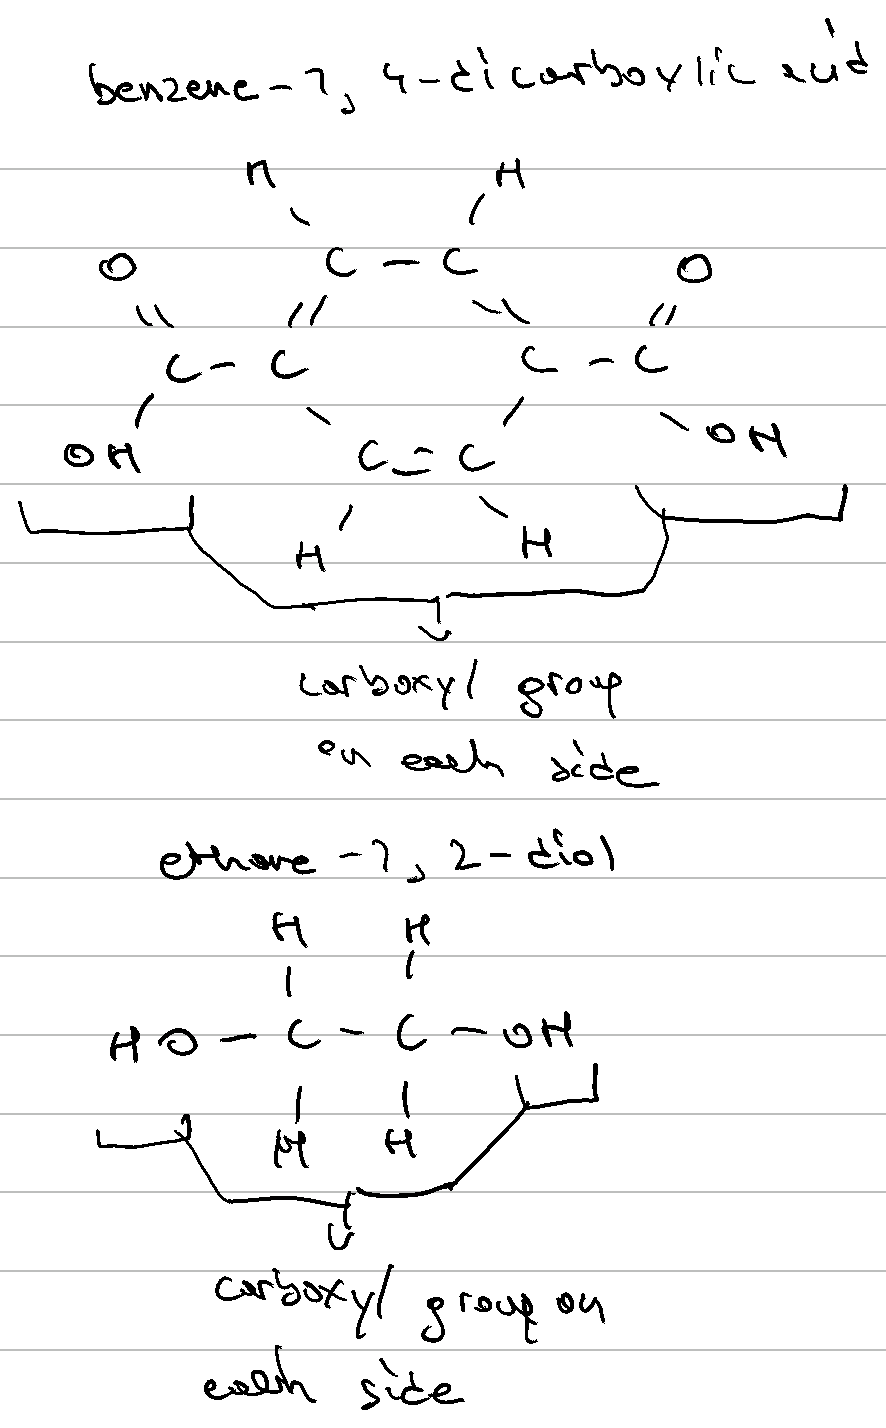 benzene-1, 4-dicarboxylic acid
H H
C - C
O O
C - C C - C
OH C = C OH
H H
carboxyl group
on each side
ethane-1, 2-diol
H H
HO - C - C - OH
H H
carboxyl group on
each side